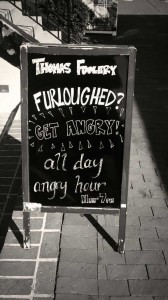 THOMAS FOOLERY
FURLOUGHED?
GET ANGRY!
all day
angry hour